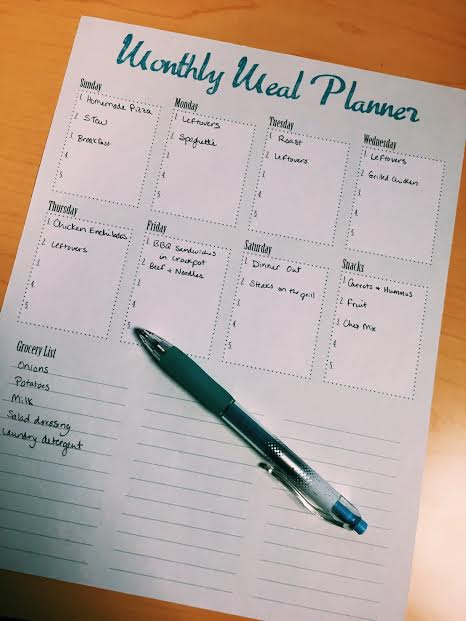 Monthly Meal Planner
Sunday
1. Homemade Pizza
2. Stew
3. Breakfast
4.
5.
Monday
1. Leftovers
2. Spaghetti
3.
4.
5.
Tuesday
1. Roast
2. Leftovers
3.
4.
5.
Wednesday
1. Leftovers
2. Grilled Chicken
3.
4.
5.
Thursday
1. Chicken Enchiladas
2. Leftovers
3.
4.
5.
Friday
1. BBQ Sandwiches
in Crockpot
2. Beef & Noodles
3.
4.
5.
Saturday
1. Dinner Out
2. Steaks on the grill
3.
4.
5.
Snacks
1. Carrots & Hummus
2. Fruit
3. Chex Mix
4.
5.
Grocery List
Onions
Potatoes
Milk
Salad dressing
Laundry detergent